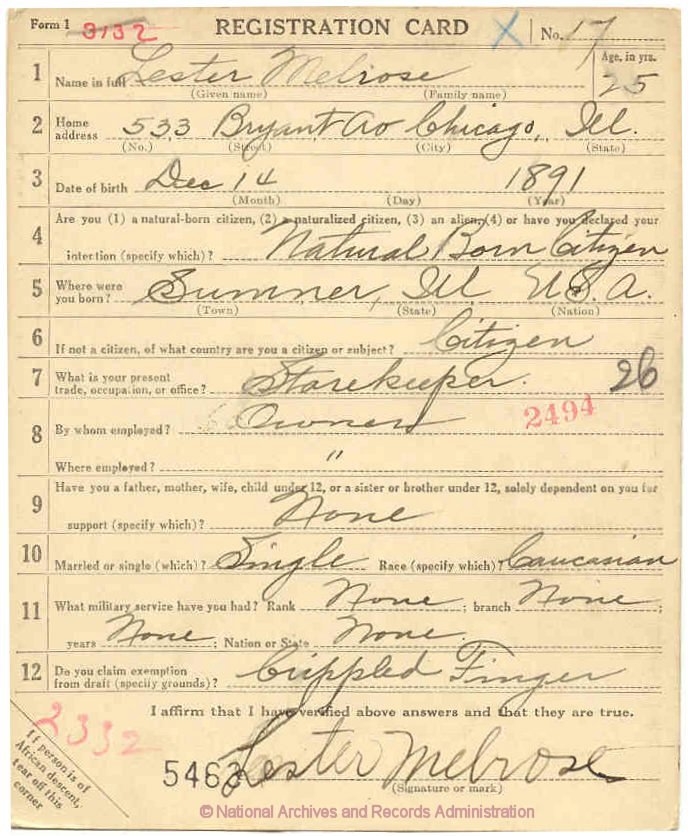 Form 1 3132 REGISTRATION CARD X No. 17
1 Name in full Lester Melrose Age, in yrs. 25
(Given name) (Family name)
2 Home address 533 Bryant Av Chicago, Ill.
(No.) (Street) (City) (State)
3 Date of birth Dec 14 1891
(Month) (Day) (Year)
4 Are you (1) a natural-born citizen, (2) a naturalized citizen, (3) an alien, (4) or have you declared your
intention (specify which)? Natural Born Citizen
5 Where were you born? Sumner, Ill U.S.A.
(Town) (State) (Nation)
6 If not a citizen, of what country are you a citizen or subject? Citizen
7 What is your present trade, occupation, or office? Storekeeper. 26
8 By whom employed? Owner 2494
Where employed? "
9 Have you a father, mother, wife, child under 12, or a sister or brother under 12, solely dependent on you for
support (specify which)? None
10 Married or single (which)? Single Race (specify which)? Caucasian
11 What military service have you had? Rank None ; branch None ;
years None ; Nation or State None.
12 Do you claim exemption from draft (specify grounds)? Crippled Finger
I affirm that I have verified above answers and that they are true.
2332
If person is of
African descent,
tear off this
corner
5463 Lester Melrose
(Signature or mark)
© National Archives and Records Administration